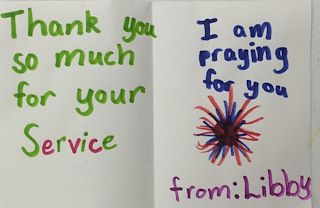 Thank you
so much
for your
Service
I am
praying
for you
from: Libby